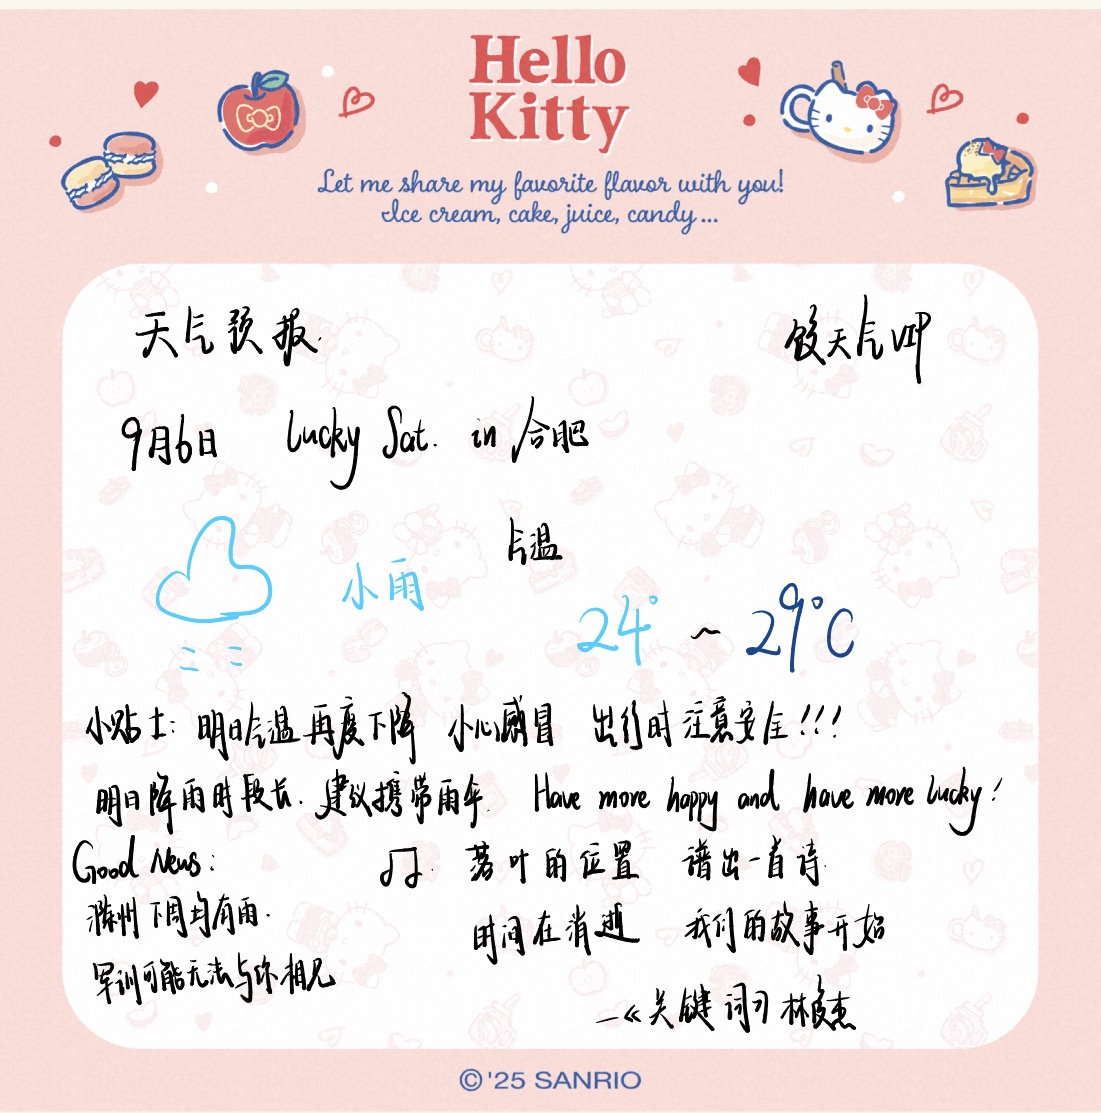 Hello
Kitty
Let me share my favorite flavor with you!
Ice cream, cake, juice, candy...
天气预报. 饺天气VIP
9月6日 Lucky Sat. in 合肥
气温
小雨
24° ~ 29°C
小贴士: 明日气温再度下降 小心感冒 出行时注意安全!!!
明日降雨时段长. 建议携带雨伞. Have more happy and have more lucky!
Good News: ♫. 落叶的位置 谱出一首诗.
滁州下周均有雨. 时间在消逝 我们的故事开始
军训可能无法与你相见
—《关键词》林俊杰
© '25 SANRIO